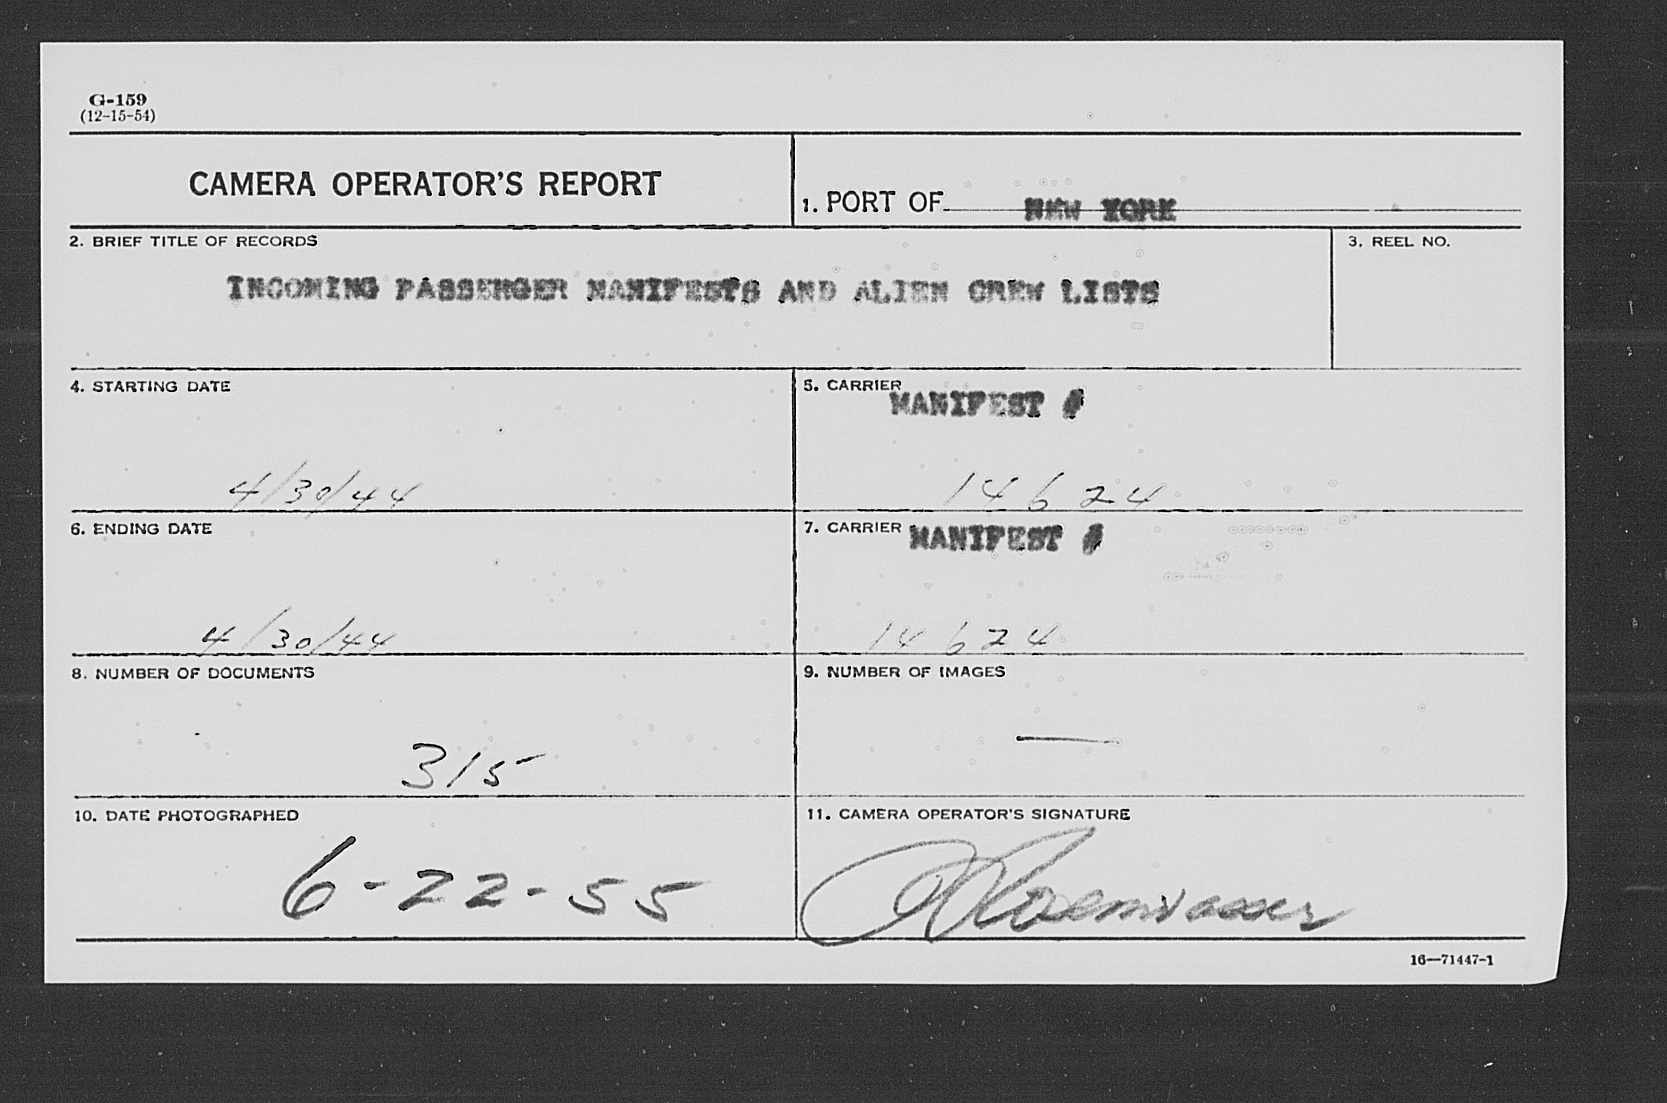 G-159
(12-15-54)
CAMERA OPERATOR'S REPORT
1. PORT OF NEW YORK
2. BRIEF TITLE OF RECORDS
3. REEL NO.
INCOMING PASSENGER MANIFESTS AND ALIEN CREW LISTS
4. STARTING DATE
5. CARRIER MANIFEST #
4/30/44
14624
6. ENDING DATE
7. CARRIER MANIFEST #
4/30/44
14624
8. NUMBER OF DOCUMENTS
9. NUMBER OF IMAGES
315
—
10. DATE PHOTOGRAPHED
11. CAMERA OPERATOR'S SIGNATURE
6-22-55
16—71447-1